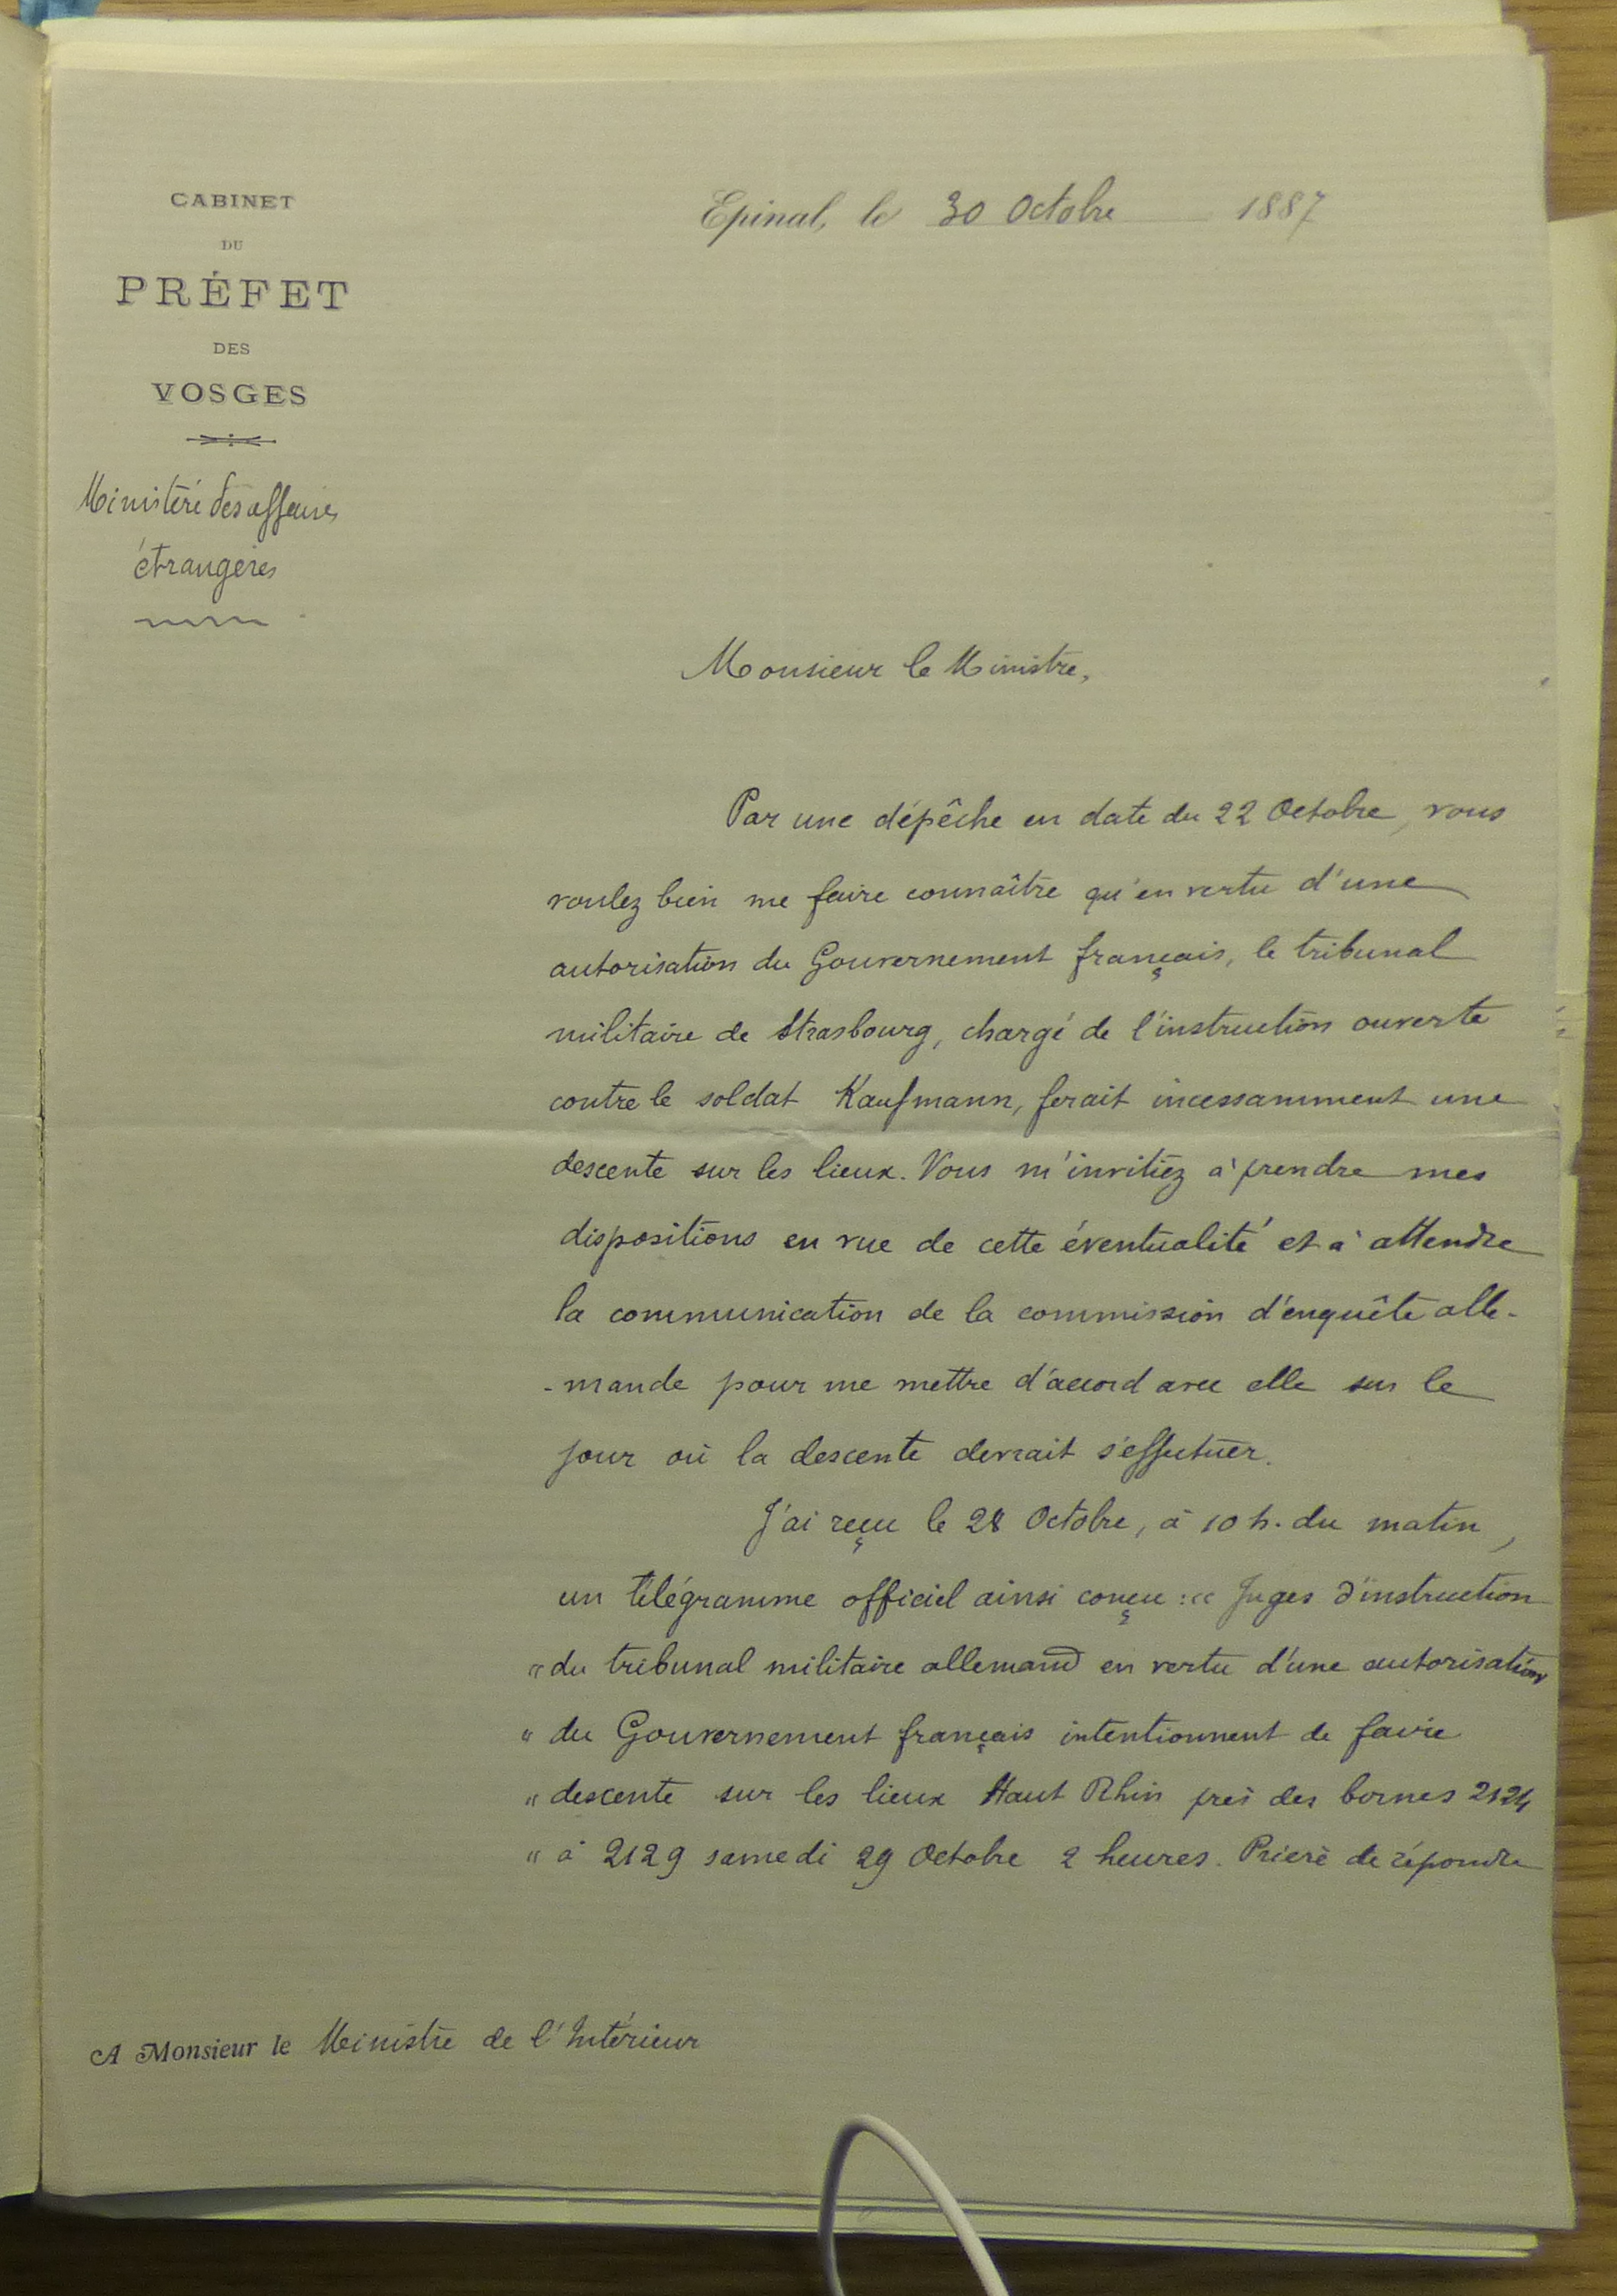 CABINET
DU
PRÉFET
DES
VOSGES
Ministère des affaires
étrangères
Epinal, le 30 Octobre 1887
Monsieur le Ministre,
Par une dépêche en date du 22 Octobre, vous
voulez bien me faire connaître qu'en vertu d'une
autorisation du Gouvernement français, le tribunal
militaire de Strasbourg, chargé de l'instruction ouverte
contre le soldat Kaufmann, ferait incessamment une
descente sur les lieux. Vous m'invitiez à prendre mes
dispositions en vue de cette éventualité et à attendre
la communication de la commission d'enquête alle-
-mande pour me mettre d'accord avec elle sur le
jour où la descente devrait s'effectuer.
J'ai reçu le 28 Octobre, à 10 h. du matin,
un télégramme officiel ainsi conçu : « Juges d'instruction
« du tribunal militaire allemand en vertu d'une autorisation
« du Gouvernement français intentionnent de faire
« descente sur les lieux Haut Rhin près des bornes 2124
« à 2129 samedi 29 Octobre 2 heures. Prière de répondre
A Monsieur le Ministre de l'Intérieur